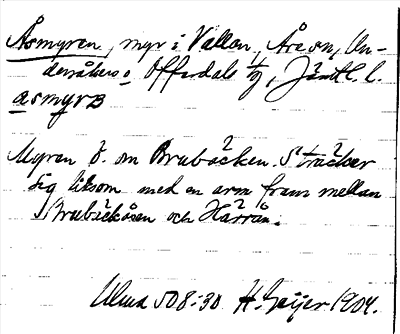 Åsmyren, myr i Vallan, Åre sn, Un-
deråkers o. Offerdals tg, Jämtl. l.
asmyrB
Myren ö. om Brubäcken. Sträcker
sig liksom med en arm fram mellan
Brubäckåsen och Härrån.
508:30 H. Geijer 1904.